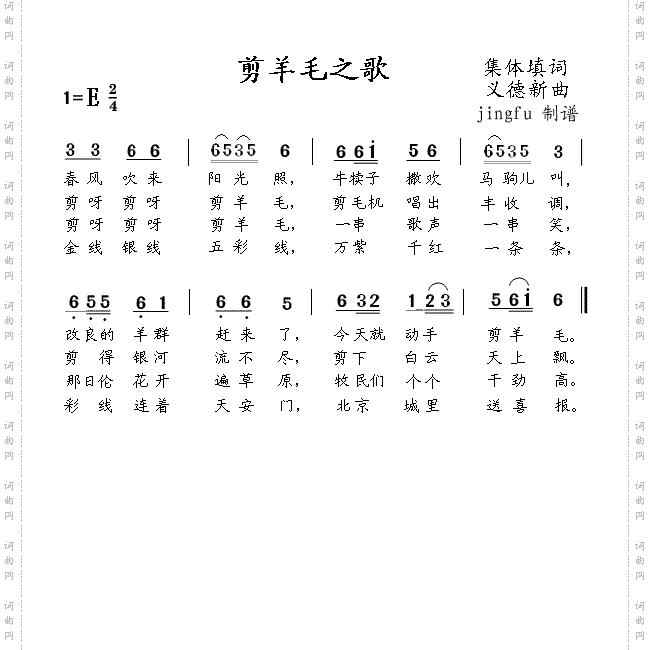 剪羊毛之歌
集体填词
义德新曲
jingfu 制谱
1=E 2/4
3 3 6 6 | 6535 6 | 6 61 5 6 | 6535 3 |
春风 吹来 阳光 照, 牛犊子 撒欢 马驹儿 叫,
剪呀 剪呀 剪羊 毛, 剪毛机 唱出 丰收 调,
剪呀 剪呀 剪羊 毛, 一串 歌声 一串 笑,
金线 银线 五彩 线, 万紫 千红 一条 条,
6 55 6 1 | 6 6 5 | 6 32 1 23 | 5 61 6 ‖
改良的 羊群 赶来 了, 今天就 动手 剪羊 毛。
剪得 银河 流不 尽, 剪下 白云 天上 飘。
那日伦 花开 遍草 原, 牧民们 个个 干劲 高。
彩线 连着 天安 门, 北京 城里 送喜 报。
词曲网
词曲网
词曲网
词曲网
词曲网
词曲网
词曲网
词曲网
词曲网
词曲网
词曲网
词曲网